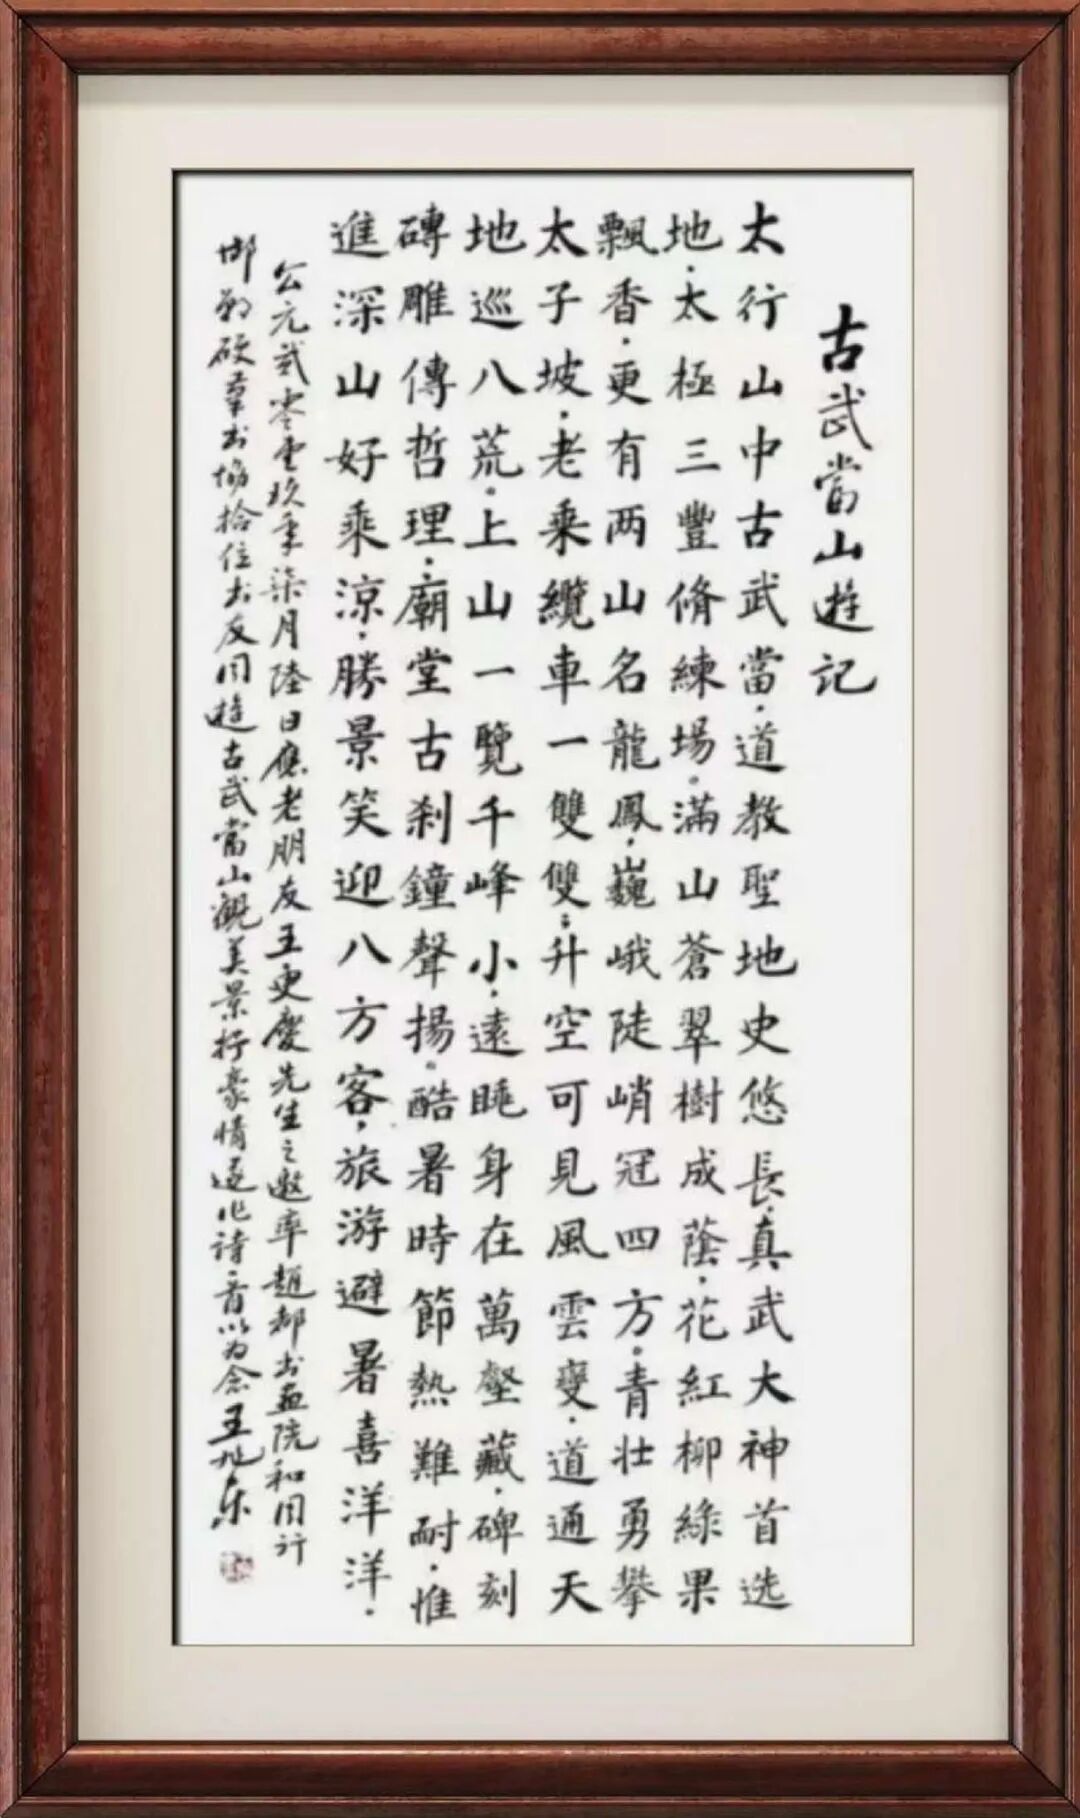 古武當山遊記
太行山中古武當，道教聖地史悠長，真武大神首选
地，太極三豐脩練場。滿山蒼翠樹成蔭，花紅柳綠果
飄香，更有两山名龍鳳，巍峨陡峭冠四方。青壮勇攀
太子坡，老乘纜車一雙雙；升空可見風雲變，道通天
地巡八荒。上山一覽千峰小，遠眺身在萬壑藏，碑刻
磚雕傳哲理，廟堂古刹鐘聲揚。酷暑時節熱難耐，惟
進深山好乘涼，勝景笑迎八方客，旅游避暑喜洋洋。
公元贰零壹玖年柒月陸日應老朋友王更慶先生之邀率趙都书画院和同行
邯郸硬筆书協拾位书友同遊古武當山觀美景抒豪情遂作詩一首以为念王旭东